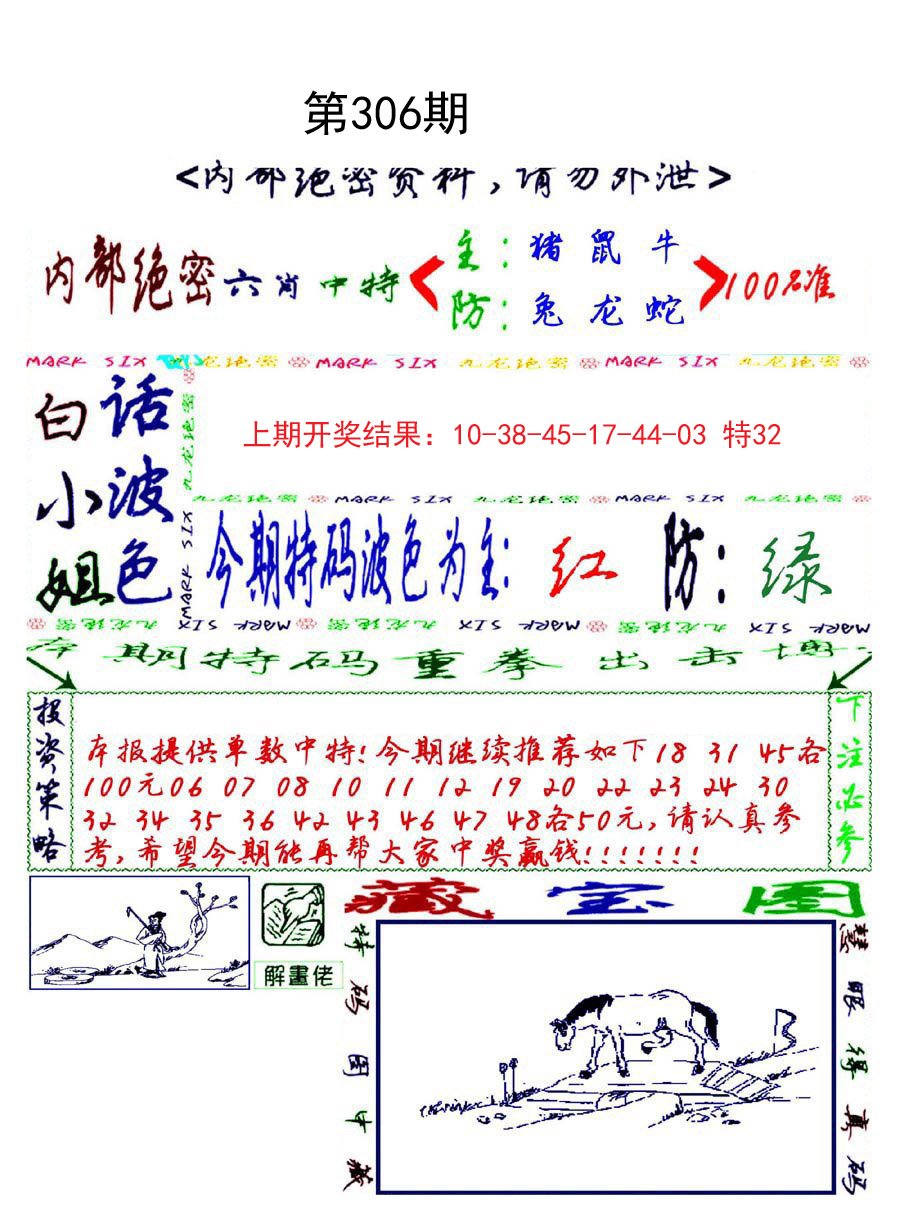 第306期
<内部绝密资料,请勿外泄>
内部绝密六肖中特
主:猪鼠牛
防:兔龙蛇
100%准
MARK SIX 九龙绝密 MARK SIX 九龙绝密 MARK SIX 九龙绝密
白话
小波
姐色
九龙绝密
MARK SIX
上期开奖结果：10-38-45-17-44-03 特32
九龙绝密 MARK SIX 九龙绝密 MARK SIX 九龙绝密
今期特码波色为主:红 防:绿
九龙绝密 MARK SIX 九龙绝密 MARK SIX 九龙绝密 MARK SIX
本期特码重拳出击博
投资策略
本报提供单数中特!今期继续推荐如下18 31 45各
100元06 07 08 10 11 12 19 20 22 23 24 30
32 34 35 36 42 43 46 47 48各50元,请认真参
考,希望今期能再帮大家中奖赢钱!!!!!!!
下注必参
解畫佬
藏宝图
特码图中藏
慧眼得真码